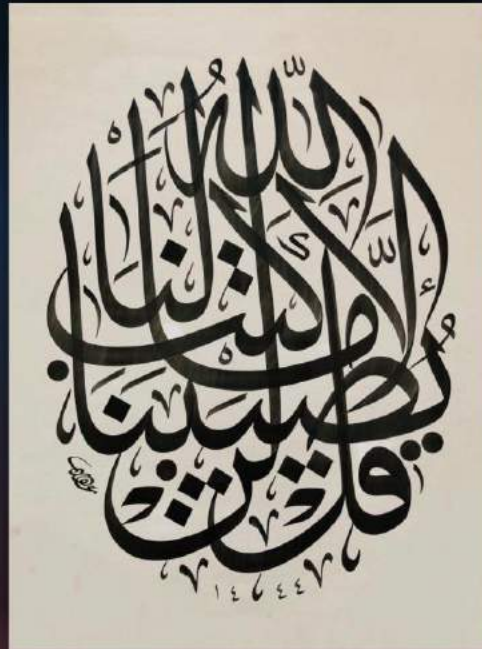 قُل لَّن يُصِيبَنَا إِلَّا مَا كَتَبَ اللَّهُ لَنَا
١٤٤٤